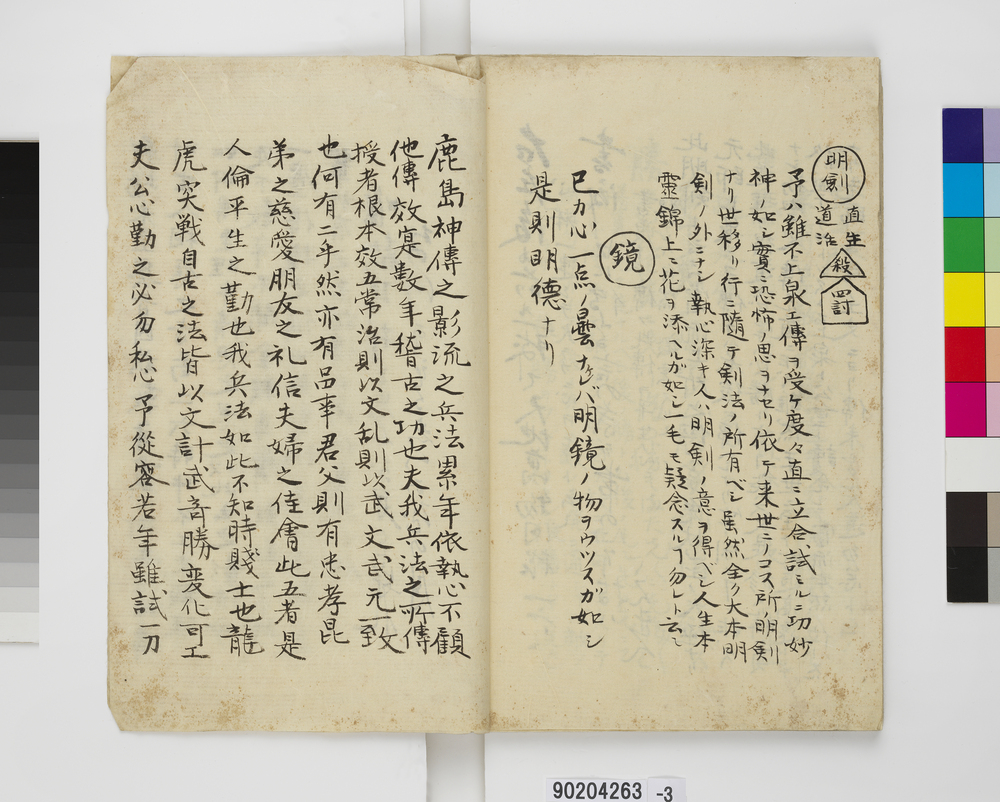 明剣
直道
生治
殺
罰
予ハ雖不上泉エ傳ヲ受ケ度々直ニ立合試ミルニ功妙
神ノ如シ實ニ恐怖ノ思ヲナセリ依テ来世ニノコス所ノ明剣
ナリ世移リ行ニ隨テ剣法ノ所有ベシ虽然全ク大本明
剣ノ外ニナシ執心深キ人ハ明剣ノ意ヲ得ベシ人生本
霊錦上ニ花ヲ添ヘルガ如シ一毛モ疑念スルヿ勿レト云々
鏡
己カ心一点ノ曇ナケレバ明鏡ノ物ヲウツスガ如シ
是則明德ナリ
鹿島神傳之影流之兵法累年依執心不顧
他傳效寔数年稽古之功也夫我兵法之所傳
授者根本效五常治則以文乱則以武文武元一致
也何有二乎然亦有品率君父則有忠孝昆
弟之慈愛朋友之礼信夫婦之佳會此五者是
人倫平生之勤也我兵法如此不知時賤士也龍
虎突戦自古之法皆以文計武奇勝変化可工
夫公心勤之必勿私心予從容若年雖試一刀
90204263 -3